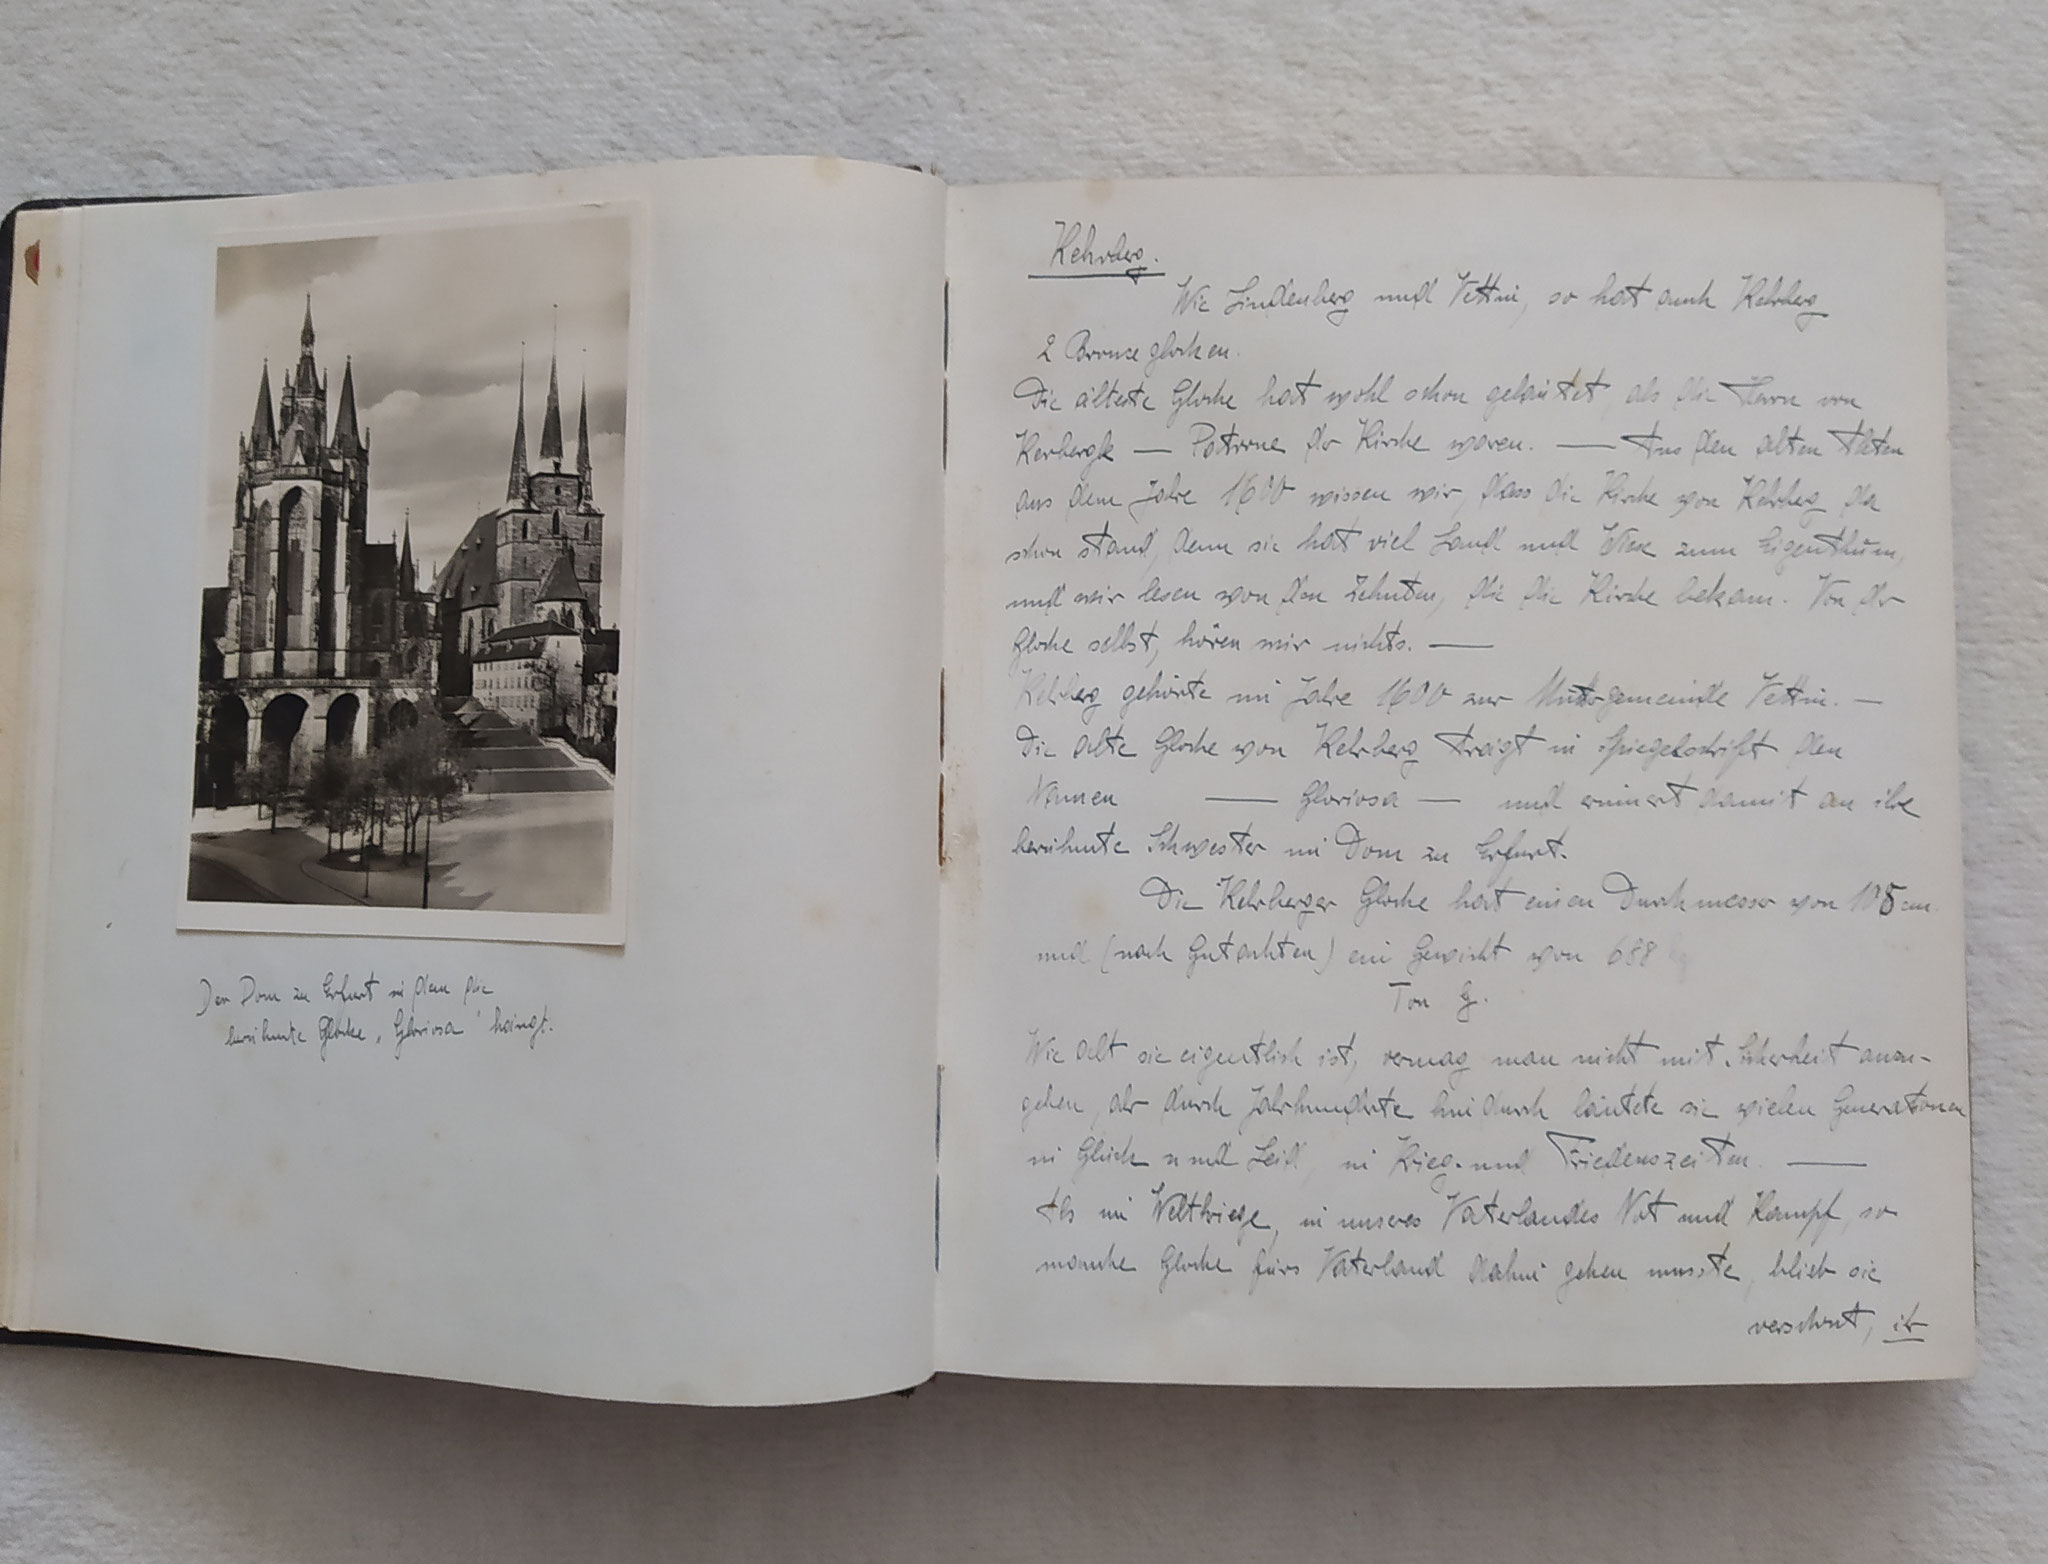 Der Dom zu Erfurt in dem die
berühmte Glocke „Gloriosa" hängt.
Kehrberg.
Wie Lindenberg und Vettin, so hat auch Kehrberg
2 Bronzeglocken.
Die älteste Glocke hat wohl schon geläutet, als die Herrn von
Kerbergk — Patrone der Kirche waren. — Aus den alten Akten
aus dem Jahre 1600 wissen wir, dass die Kirche von Kehrberg da
schon stand, denn sie hat viel Land und Wiese zum Eigenthum,
und wir lesen von den Zehnten, die die Kirche bekam. Von der
Glocke selbst, hören wir nichts. —
Kehrberg gehörte im Jahre 1600 zur Muttergemeinde Vettin. —
Die alte Glocke von Kehrberg trägt in Spiegelschrift den
Namen — Gloriosa — und erinnert damit an ihre
berühmte Schwester im Dom zu Erfurt.
Die Kehrberger Glocke hat einen Durchmesser von 108 cm.
und (nach Gutachten) ein Gewicht von 688 kg
Ton g.
Wie alt sie eigentlich ist, vermag man nicht mit Sicherheit anzu-
geben, aber durch Jahrhunderte hindurch läutete sie vielen Generationen
in Glück und Leid, in Krieg- und Friedenszeiten. —
Als im Weltkriege, in unseres Vaterlandes Not und Kampf, so
manche Glocke fürs Vaterland dahin gehen musste, blieb sie
verschont, ihr